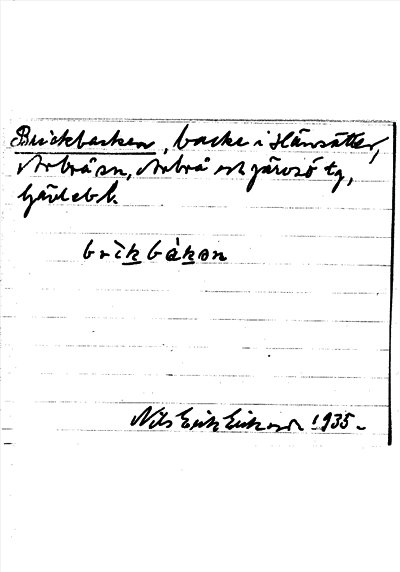 Brickbacken, backe i Hänsätter,
Arbrå sn, Arbrå och Järvsö tg,
Gävleb. l.
brìkbákan
Nils Erik Eriksson 1935.